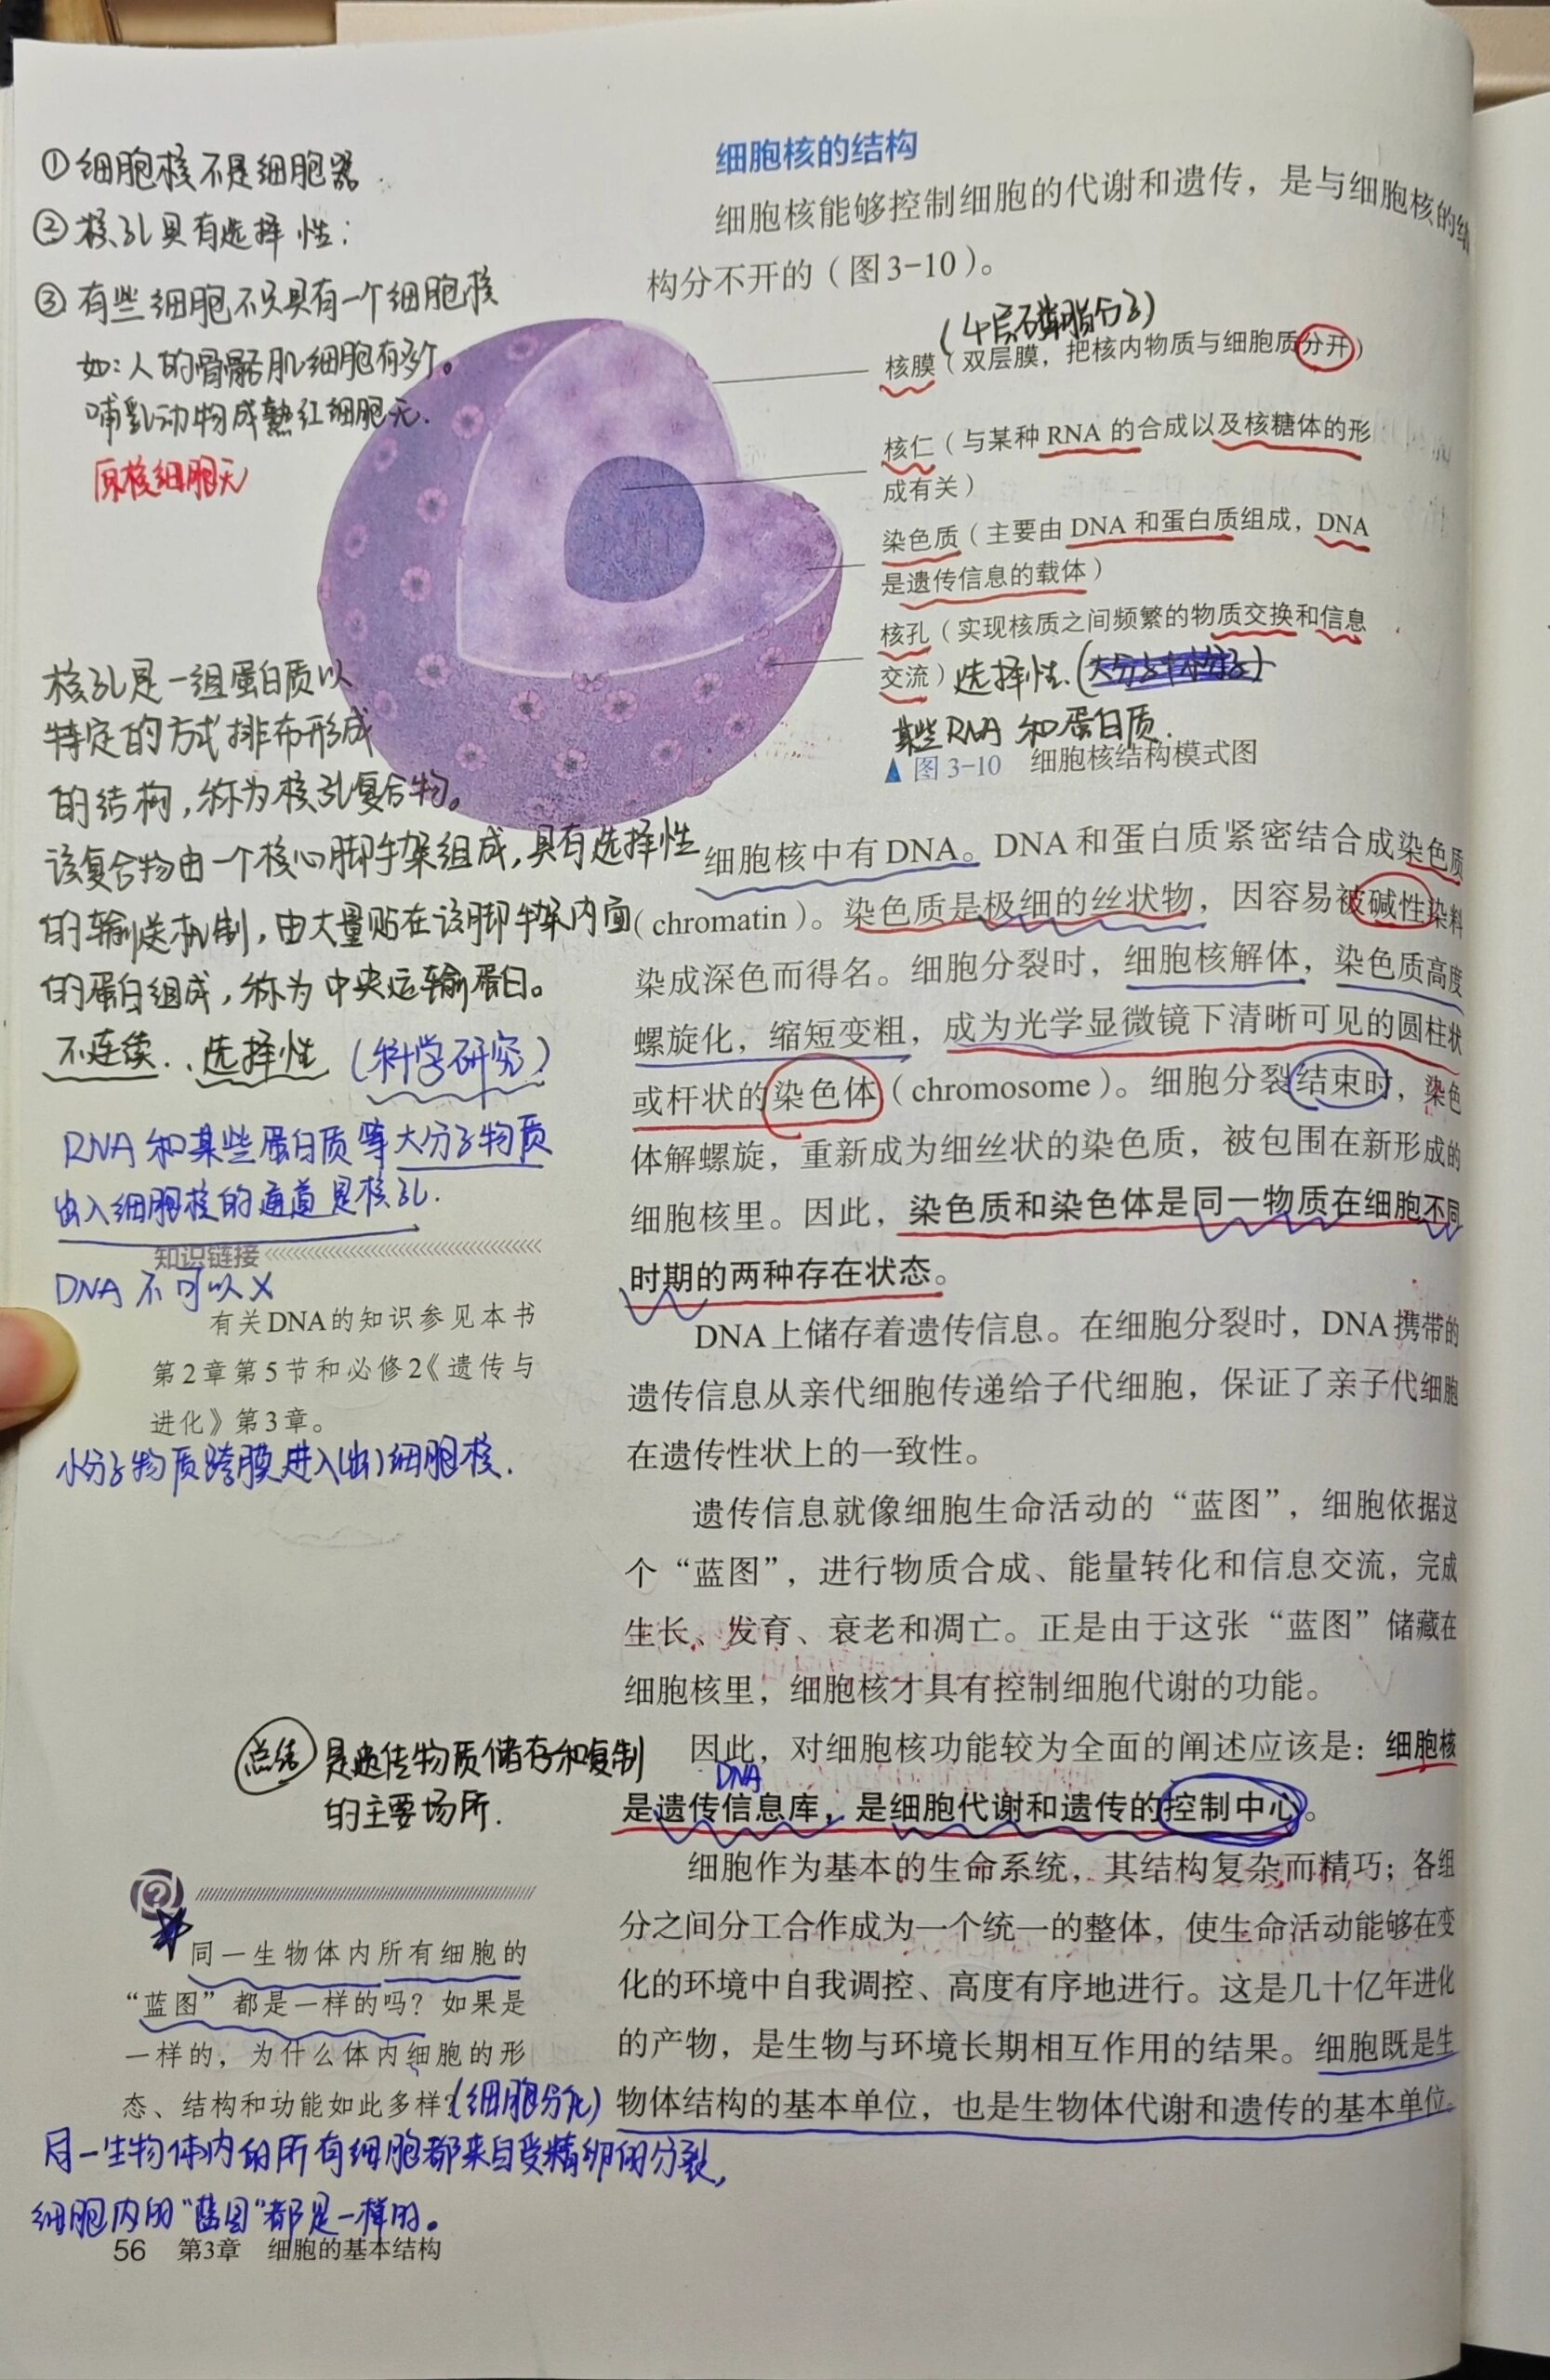 ①细胞核不是细胞器.
②核孔具有选择性;
③有些细胞不只具有一个细胞核
如:人的骨骼肌细胞有多个。
哺乳动物成熟红细胞无.
原核细胞无
核孔是一组蛋白质以
特定的方式排布形成
的结构,称为核孔复合物。
该复合物由一个核心脚手架组成,具有选择性
的输送机制,由大量贴在该脚手架内面
的蛋白组成,称为中央运输蛋白。
不连续..选择性(科学研究)
RNA和某些蛋白质等大分子物质
出入细胞核的通道是核孔.
知识链接
DNA不可以×
有关DNA的知识参见本书
第2章第5节和必修2《遗传与
进化》第3章。
小分子物质跨膜进入(出)细胞核.
总结 是遗传物质储存和复制
的主要场所.
同一生物体内所有细胞的
“蓝图”都是一样的吗?如果是
一样的,为什么体内细胞的形
态、结构和功能如此多样?(细胞分化)
同一生物体内的所有细胞都来自受精卵的分裂,
细胞内的“蓝图”都是一样的。
56 第3章 细胞的基本结构
细胞核的结构
细胞核能够控制细胞的代谢和遗传,是与细胞核的结
构分不开的(图3-10)。
(4层磷脂分子)
核膜(双层膜,把核内物质与细胞质分开)
核仁(与某种RNA的合成以及核糖体的形
成有关)
染色质(主要由DNA和蛋白质组成,DNA
是遗传信息的载体)
核孔(实现核质之间频繁的物质交换和信息
交流)选择性.
某些RNA和蛋白质.
▲图3-10 细胞核结构模式图
细胞核中有DNA。DNA和蛋白质紧密结合成染色质
(chromatin)。染色质是极细的丝状物,因容易被碱性染料
染成深色而得名。细胞分裂时,细胞核解体,染色质高度
螺旋化,缩短变粗,成为光学显微镜下清晰可见的圆柱状
或杆状的染色体(chromosome)。细胞分裂结束时,染色
体解螺旋,重新成为细丝状的染色质,被包围在新形成的
细胞核里。因此,染色质和染色体是同一物质在细胞不同
时期的两种存在状态。
DNA上储存着遗传信息。在细胞分裂时,DNA携带的
遗传信息从亲代细胞传递给子代细胞,保证了亲子代细胞
在遗传性状上的一致性。
遗传信息就像细胞生命活动的“蓝图”,细胞依据这
个“蓝图”,进行物质合成、能量转化和信息交流,完成
生长、发育、衰老和凋亡。正是由于这张“蓝图”储藏在
细胞核里,细胞核才具有控制细胞代谢的功能。
因此,对细胞核功能较为全面的阐述应该是:细胞核
DNA
是遗传信息库,是细胞代谢和遗传的控制中心。
细胞作为基本的生命系统,其结构复杂而精巧;各组
分之间分工合作成为一个统一的整体,使生命活动能够在变
化的环境中自我调控、高度有序地进行。这是几十亿年进化
的产物,是生物与环境长期相互作用的结果。细胞既是生
物体结构的基本单位,也是生物体代谢和遗传的基本单位。